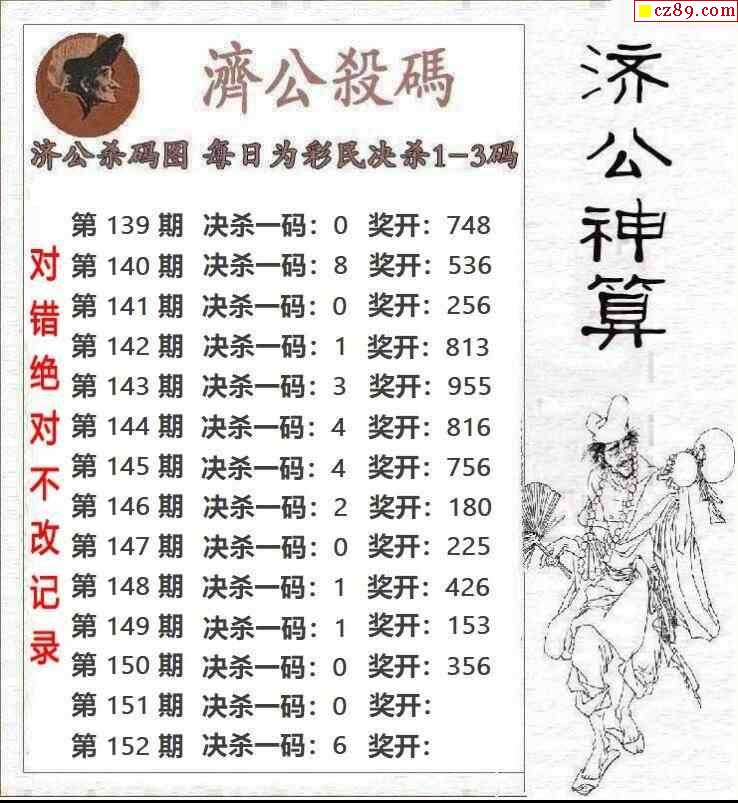 cz89.com
濟公殺碼
济公杀码图 每日为彩民决杀1-3码
第 139 期 决杀一码：0 奖开：748
第 140 期 决杀一码：8 奖开：536
第 141 期 决杀一码：0 奖开：256
第 142 期 决杀一码：1 奖开：813
第 143 期 决杀一码：3 奖开：955
第 144 期 决杀一码：4 奖开：816
第 145 期 决杀一码：4 奖开：756
第 146 期 决杀一码：2 奖开：180
第 147 期 决杀一码：0 奖开：225
第 148 期 决杀一码：1 奖开：426
第 149 期 决杀一码：1 奖开：153
第 150 期 决杀一码：0 奖开：356
第 151 期 决杀一码：0 奖开：
第 152 期 决杀一码：6 奖开：
对错绝对不改记录
济公神算